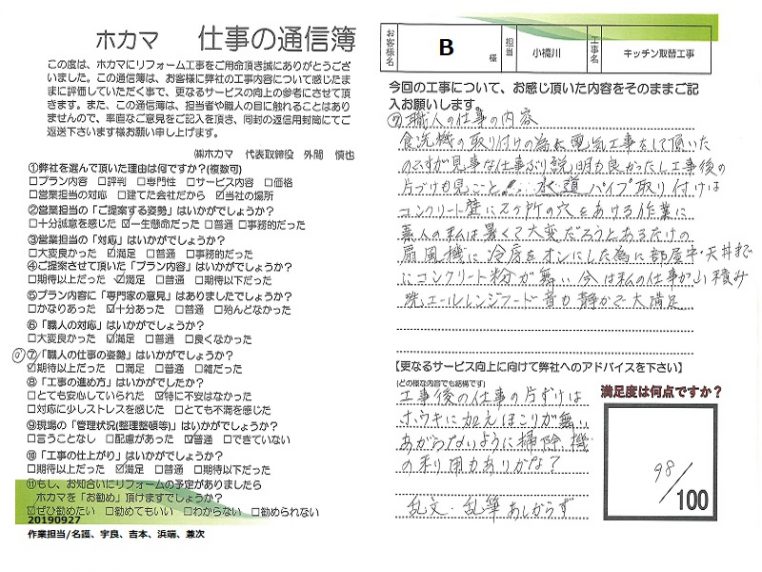 ホカマ 仕事の通信簿
この度は、ホカマにリフォーム工事をご用命頂き誠にありがとうござ
いました。この通信簿は、お客様に弊社の工事内容について感じたま
まに評価していただく事で、更なるサービスの向上の参考にさせて頂
きます。また、この通信簿は、担当者や職人の目に触れることはあり
ませんので、率直なご意見をご記入を頂き、同封の返信用封筒にてご
返送下さいます様お願い申し上げます。
㈱ホカマ 代表取締役 外間 慎也
①弊社を選んで頂いた理由は何ですか?(複数可)
□プラン内容 □評判 □専門性 □サービス内容 □価格
□営業担当の対応 □建てた会社だから ☑当社の場所
②営業担当の「ご提案する姿勢」はいかがでしょうか?
□十分誠意を感じた ☑一生懸命だった □普通 □事務的だった
③営業担当の「対応」はいかがでしょうか?
□大変良かった ☑満足 □普通 □事務的だった
④ご提案させて頂いた「プラン内容」はいかがでしょうか?
□期待以上だった ☑満足 □普通 □期待以下だった
⑤プラン内容に「専門家の意見」はありましたでしょうか?
□かなりあった ☑十分あった □普通 □殆んどなかった
⑥「職人の対応」はいかがでしょうか?
□大変良かった ☑満足 □普通 □良くなかった
⑦「職人の仕事の姿勢」はいかがでしょうか?
☑期待以上だった □満足 □普通 □雑だった
⑧「工事の進め方」はいかがでしたか?
□とても安心していられた ☑特に不安はなかった
□対応に少しストレスを感じた □とても不満を感じた
⑨現場の「管理状況(整理整頓等)」はいかがでしょうか?
□言うことなし □配慮があった ☑普通 □できていない
⑩「工事の仕上がり」はいかがでしょうか?
□期待以上だった ☑満足 □普通 □期待以下だった
⑪もし、お知合いにリフォームの予定がありましたら
ホカマを「お勧め」頂けますでしょうか?
☑ぜひ勧めたい □勧めてもいい □わからない □勧められない
20190927
作業担当/名護、宇良、吉本、浜端、兼次
お客様名 B 様 担当 小橋川 工事名 キッチン取替工事
今回の工事について、お感じ頂いた内容をそのままご記
入お願いします。
⑦職人の仕事の内容
食洗機の取り付けの為に電気工事をして頂いた
のですが見事な仕事ぶり説明も良かったし工事後の
片づけも見ごと!… 水道パイプ取り付けは
コンクリート壁に2ヶ所の穴をあける作業に
素人の私は暑くて大変だろうとあるだけの
扇風機に冷房をオンにした為に部屋中・天井まで
にコンクリート粉が舞い 今は私の仕事が山積み
エールレンジフード音も静かで大満足
【更なるサービス向上に向けて弊社へのアドバイスを下さい】
(どの様な内容でも結構です)
工事後の仕事の片ずけは
ホウキに加えほこりが舞い
あがらないように掃除機
の利用もありかな?
乱文・乱筆あしからず
満足度は何点ですか?
98/100